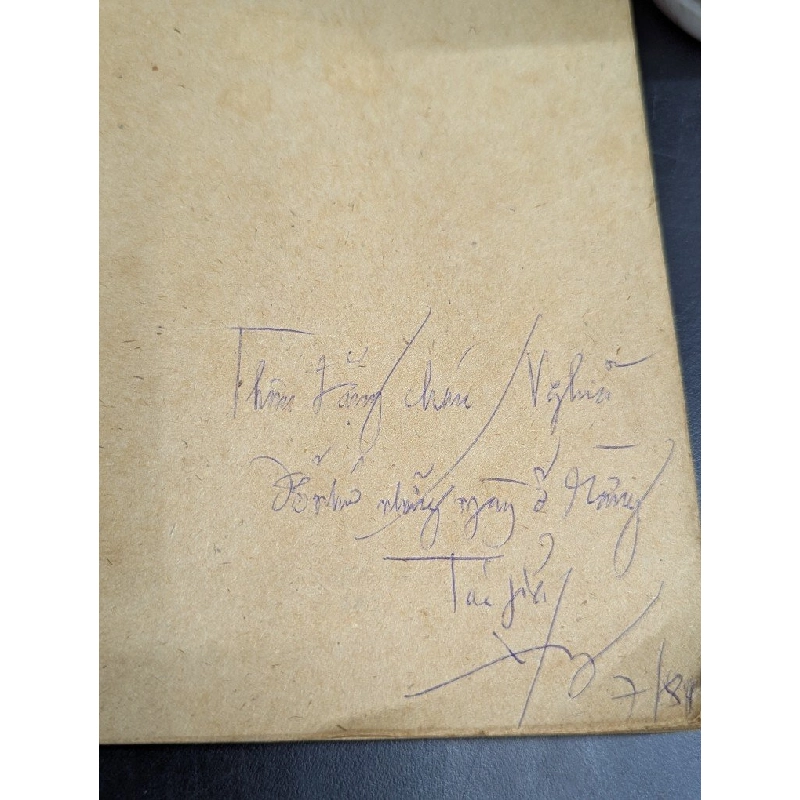 Thân tặng cháu Nghĩa
Để nhớ những ngày ở Nẵng
Tác giả
7/84